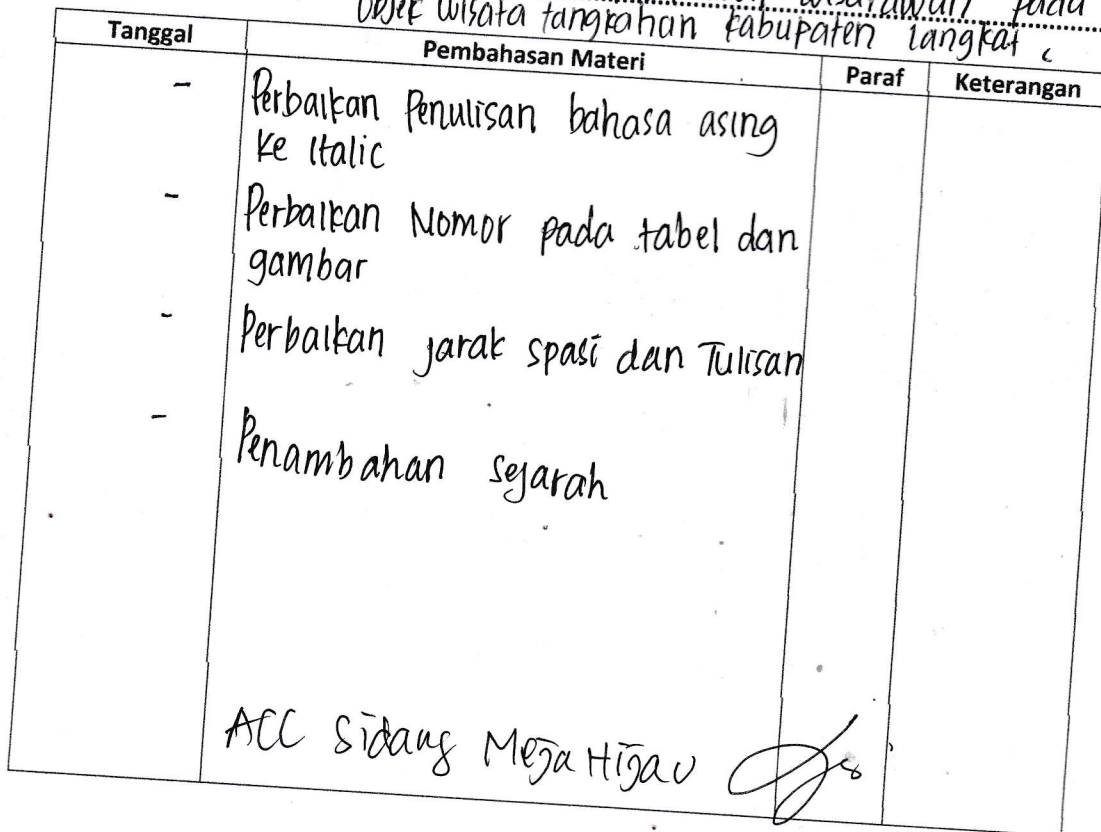 wisatawan pada
Objek wisata tangkahan kabupaten langkat
Tanggal Pembahasan Materi Paraf Keterangan
- Perbaikan Penulisan bahasa asing
ke Italic
- Perbaikan Nomor pada tabel dan
gambar
- Perbaikan jarak spasi dan Tulisan
- Penambahan sejarah
ACC Sidang Meja Hijau